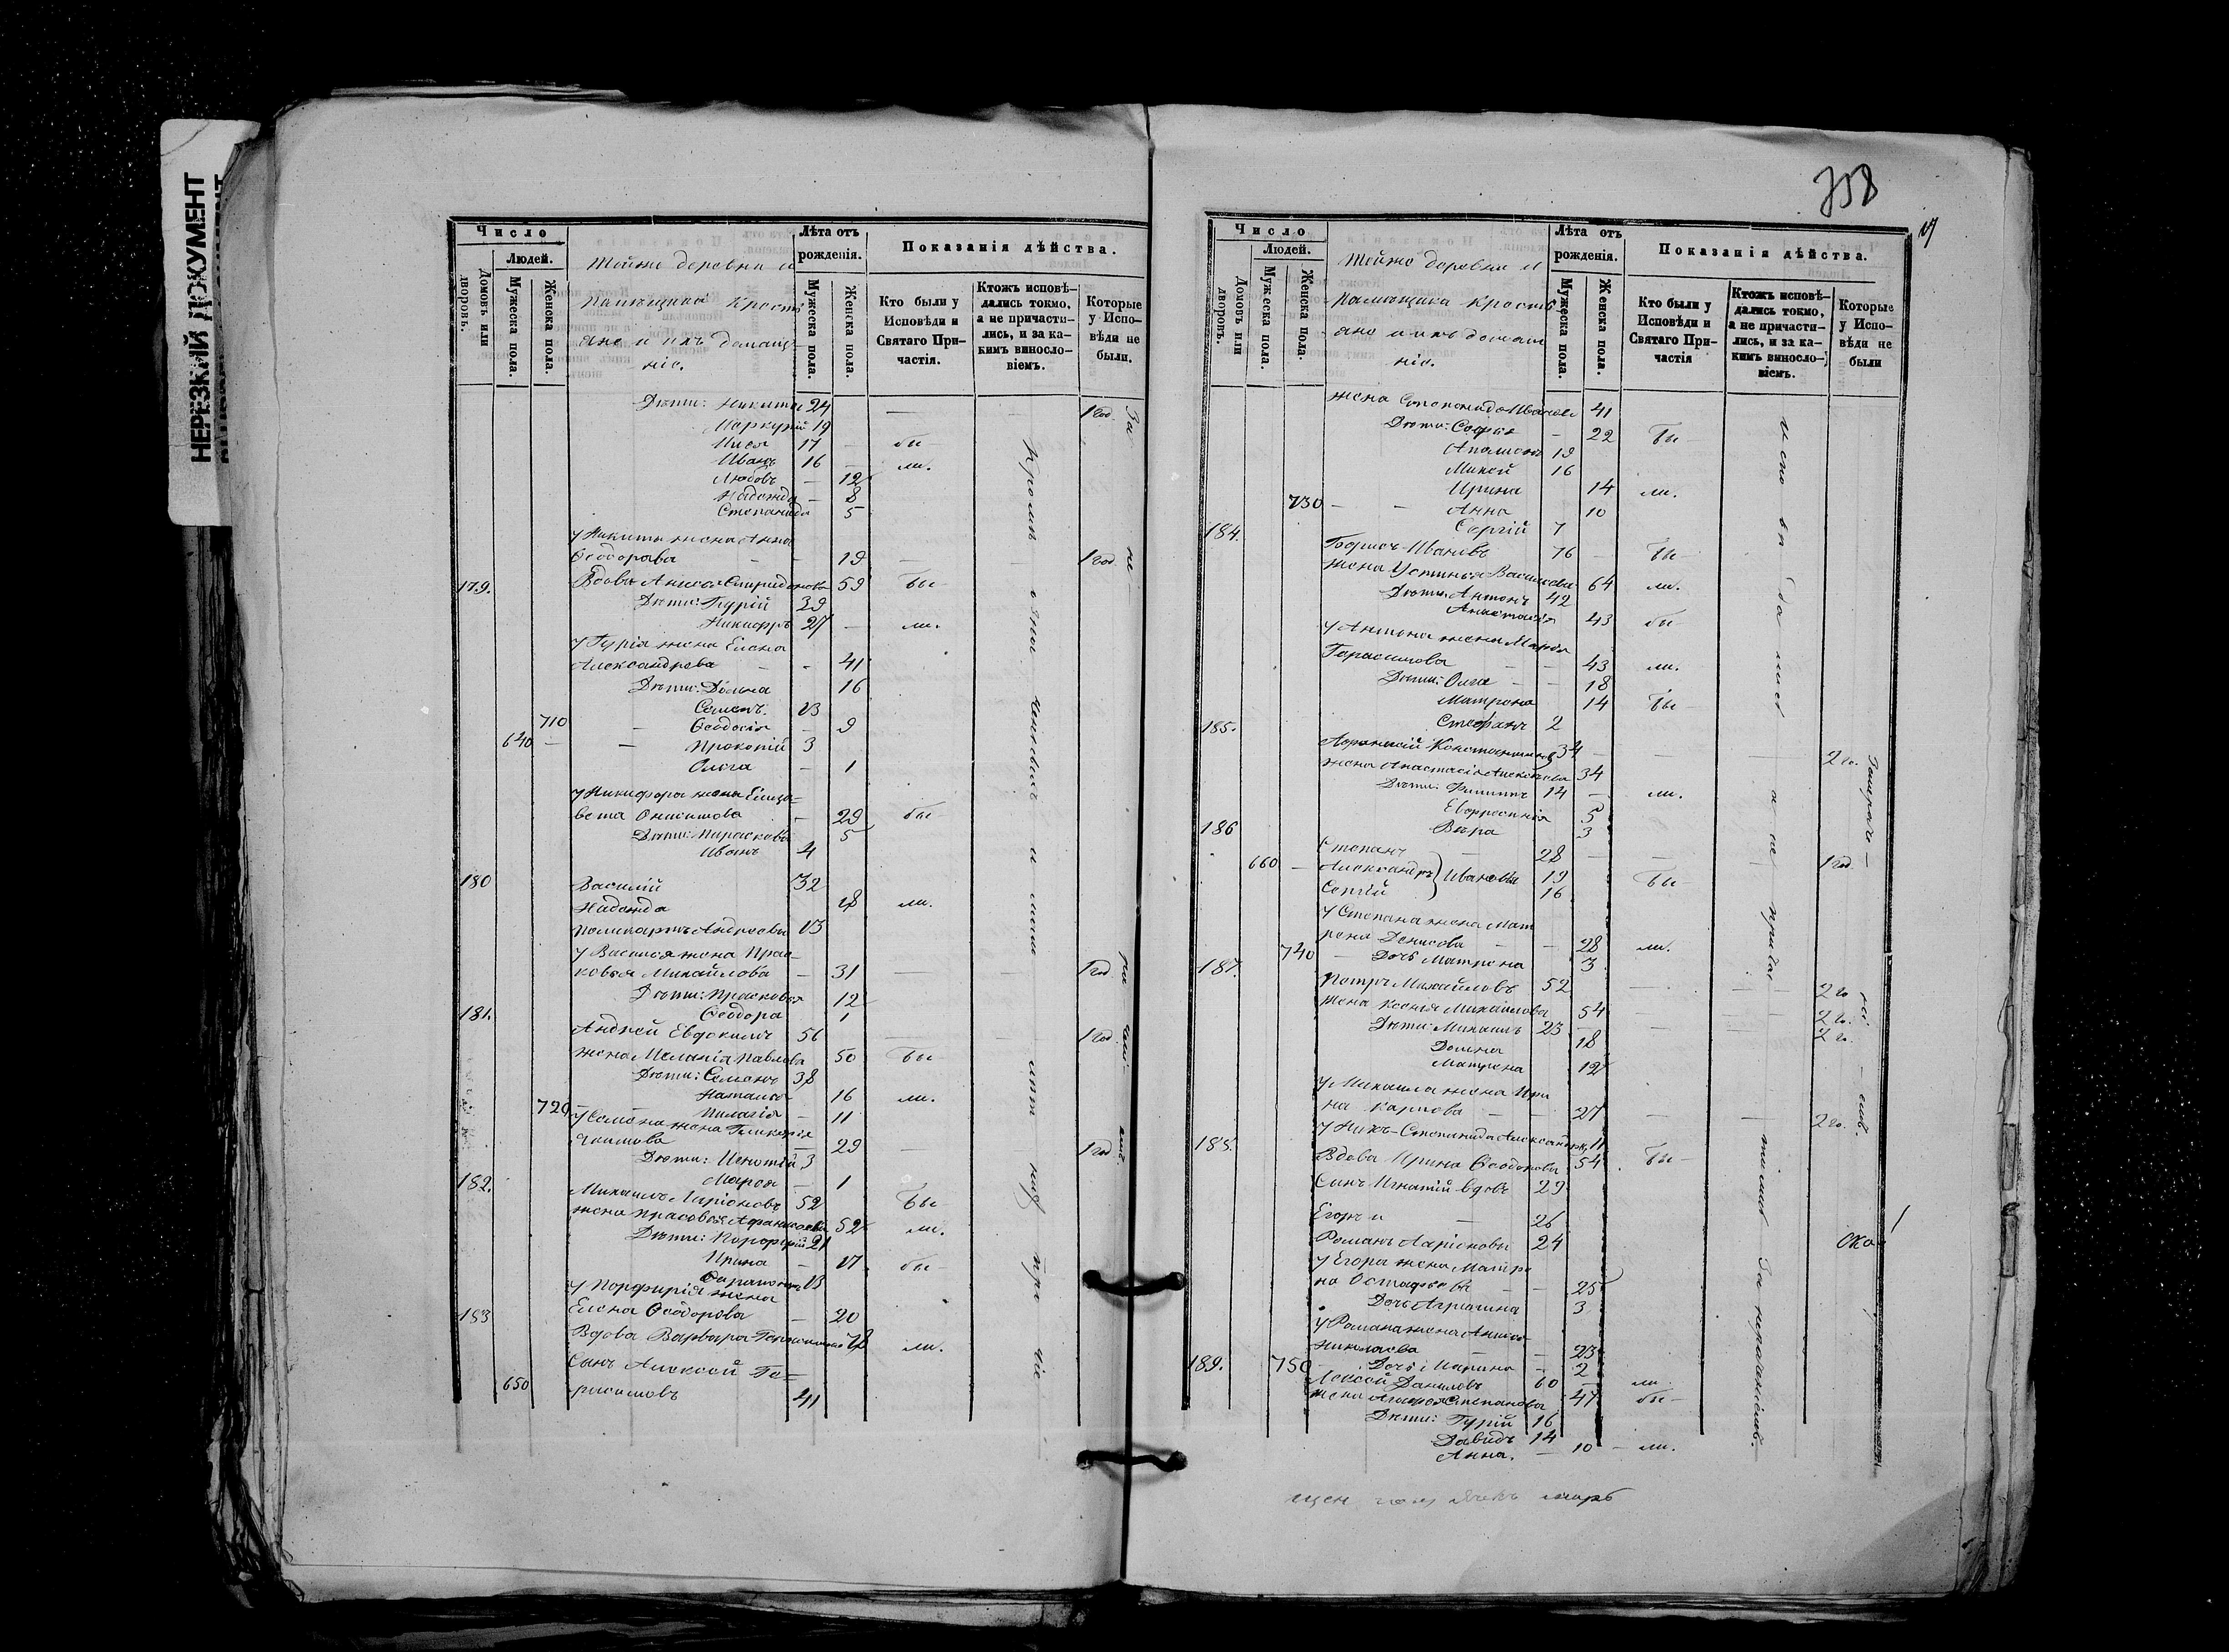 НЕРЕЗКИЙ ДОКУМЕНТ
Число
Людей.
Домовъ или дворовъ.
Мужеска пола.
Женска пола.
Тойже деревни и
помѣщика крестья
ане и ихъ домаш
ніе.
Лѣта отъ рожденія.
Мужеска пола.
Женска пола.
Показанія дѣйства.
Кто были у Исповѣди и Святаго Причастія.
Ктожъ исповѣдались токмо, а не причастились, и за какимъ винословіемъ.
Которые у Исповѣди не были.
Дѣти: Никита 24 1 год.
Меркурій 19
17 бы
Иванъ 16 ли.
Любовь 12
Надежда 8
Степанида 5
у Никиты жена Анна
Ѳеодорова 19 1 год.
179. Вдова Анисья Спиридонова 59 бы
Дѣти: Гурій 39
Никифръ 27 ли.
у Гурія жена Елена
Александрова 41
Дѣти: Домна 16
Семенъ. 13
710 Ѳеодосія 9
640 Прокопій 3
Ольга 1
у Никифора жена Елиза=
вета Онисимова 29 бы
Дѣти: Параскева 5
Иванъ 4
180 Василій 32
Надежда 18 ли.
Поликарпъ Андреевы 13
у Василья жена Прас-
ковья Михайлова 31 1 год
Дѣти: Прасковья 12
Ѳеодора 1
181. Андрей Евдокимъ 56 1 год
жена Меланія Павлова 50 бы
Дѣти: Семенъ 38
Наталья 16 ли.
720 Пелагія 11
у Семена жена Гликерія
Якимова 29 1 год
Дѣти: 3
Марѳа 1
182. Михаилъ Ларіоновъ 52 бы
жена Прасковья Афанасьева 52 ли.
Дѣти: Порфирій 21
Ирина 17 бы
13
у Порфирія жена
Елена Ѳеодорова 20
183 Вдова Варвара ли.
Сынъ Алексѣй Ге=
650 расимовъ 41
358
17
Число
Людей.
Домовъ или дворовъ.
Мужеска пола.
Женска пола.
Тойже деревни и
помѣщика крестья
ане и ихъ домаш
ніе.
Лѣта отъ рожденія.
Мужеска пола.
Женска пола.
Показанія дѣйства.
Кто были у Исповѣди и Святаго Причастія
Ктожъ исповѣдались токмо, а не причастились, и за какимъ винословіемъ.
Которые у Исповѣди не были
жена Степанида Иванова 41
Дѣти: Софья 22 бы
19
16
Ирина 14 ли.
730 Анна 10
Сергій 7
184. Борисъ Ивановъ 76 бы
жена Устинья Васильева 64 ли.
Дѣти: Антонъ 42
Анастасія 43 бы
у Антона жена Марѳа
Герасимова 43 ли.
Дѣти: Ольга 18
Матрена 14 бы
Стефанъ 2
185. Афанасій Константиновъ 34 2 го.
жена Анастасія Алексѣева 34
Дѣти: Филиппъ 14 ли.
Евфросинія 5
Вѣра 3
186 Степанъ 28 1 год.
660 Александръ } Ивановы 19 бы
Сергій 16
у Степана жена Мат
рена Денисова 28 ли.
740 Дочь Матрена 3
187. Петръ Михайловъ 52 2 го
жена Ксенія Михайлова 54 2 го.
Дѣти: Михаилъ 23 2 го.
Домна 18
Матрена 12
у Михаила жена Ири
на Карпова 27 2 го.
у нихъ Степанида Александрова 11
188. Вдова Ирина Ѳеодорова 54 бы
Сынъ Игнатій вдовъ 29
Егоръ и 26
Романъ Ларіоновы 24
у Егора жена Матре
на Остафьева 25
Дочь Агрипина 3
у Романа жена Анисья
Николаева 23
750 Дочь Марина 2
189. Алексѣй Даниловъ 60 ли.
жена Агафья Степанова 47 бы
Дѣти: Гурій 16
Давидъ 14
Анна. 10 ли.